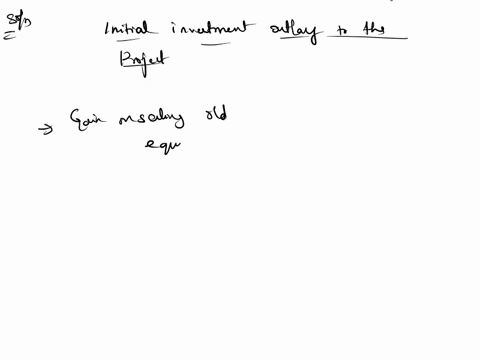 Soln
Initial investment outlay to the
Project
→ Gain on selling old
equ